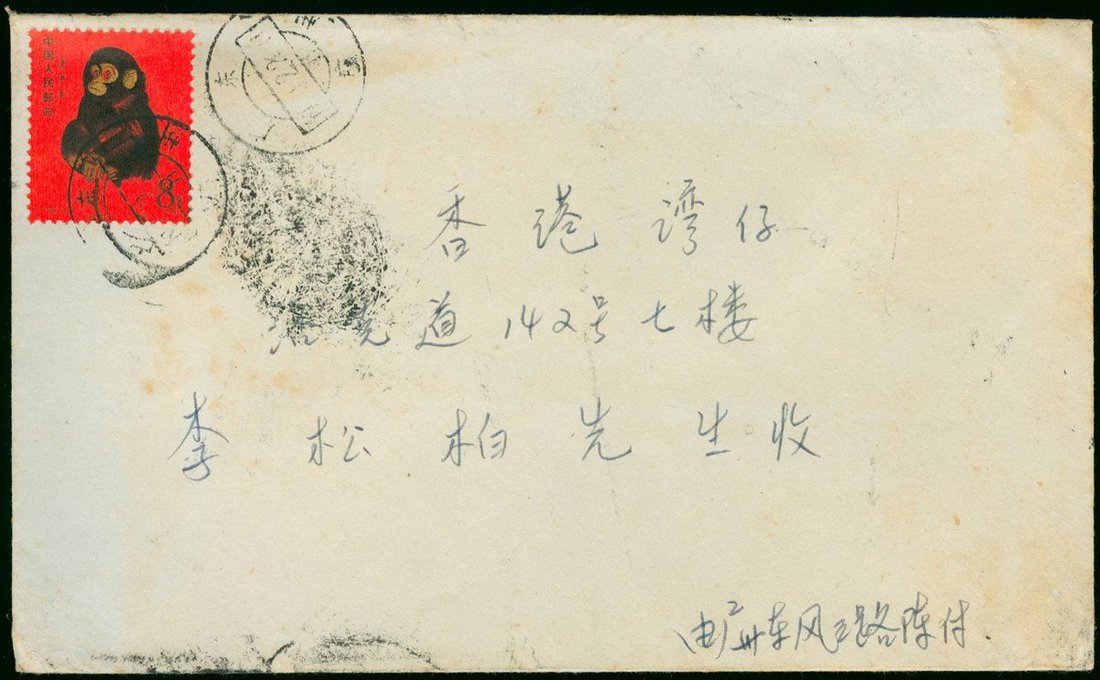 中国人民邮政
8分
香港湾仔
洛克道142号七楼
李松柏先生收
由广州东风三路陈付.